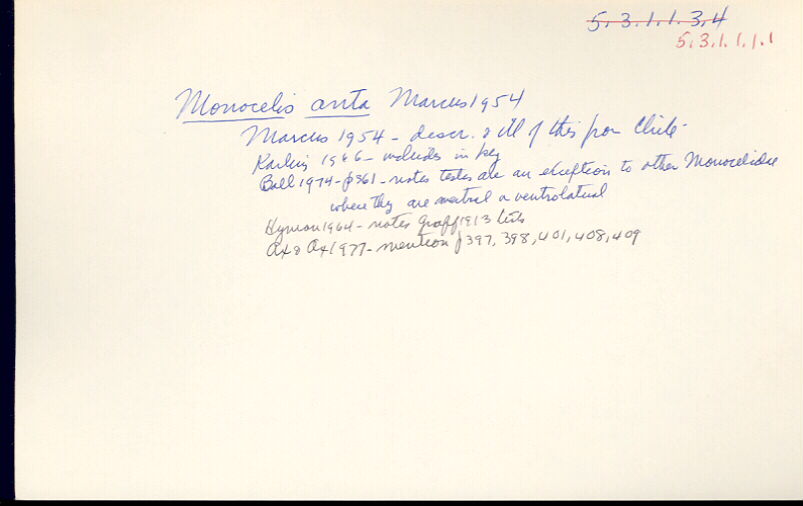 5.3.1.1.3.4
5.3.1.1.1.1
Monocelis anta Marcus 1954
Marcus 1954 - descr. & ill of this from Chile.
Karling 1966 - includes in key
Ball 1974 - p361 - notes testes are an exception to other Monocelidae
where they are ventral or ventrolateral
Hyman 1964 - notes Graff 1913 lists
Ax & Ax 1977 - mention p397, 398, 401, 408, 409